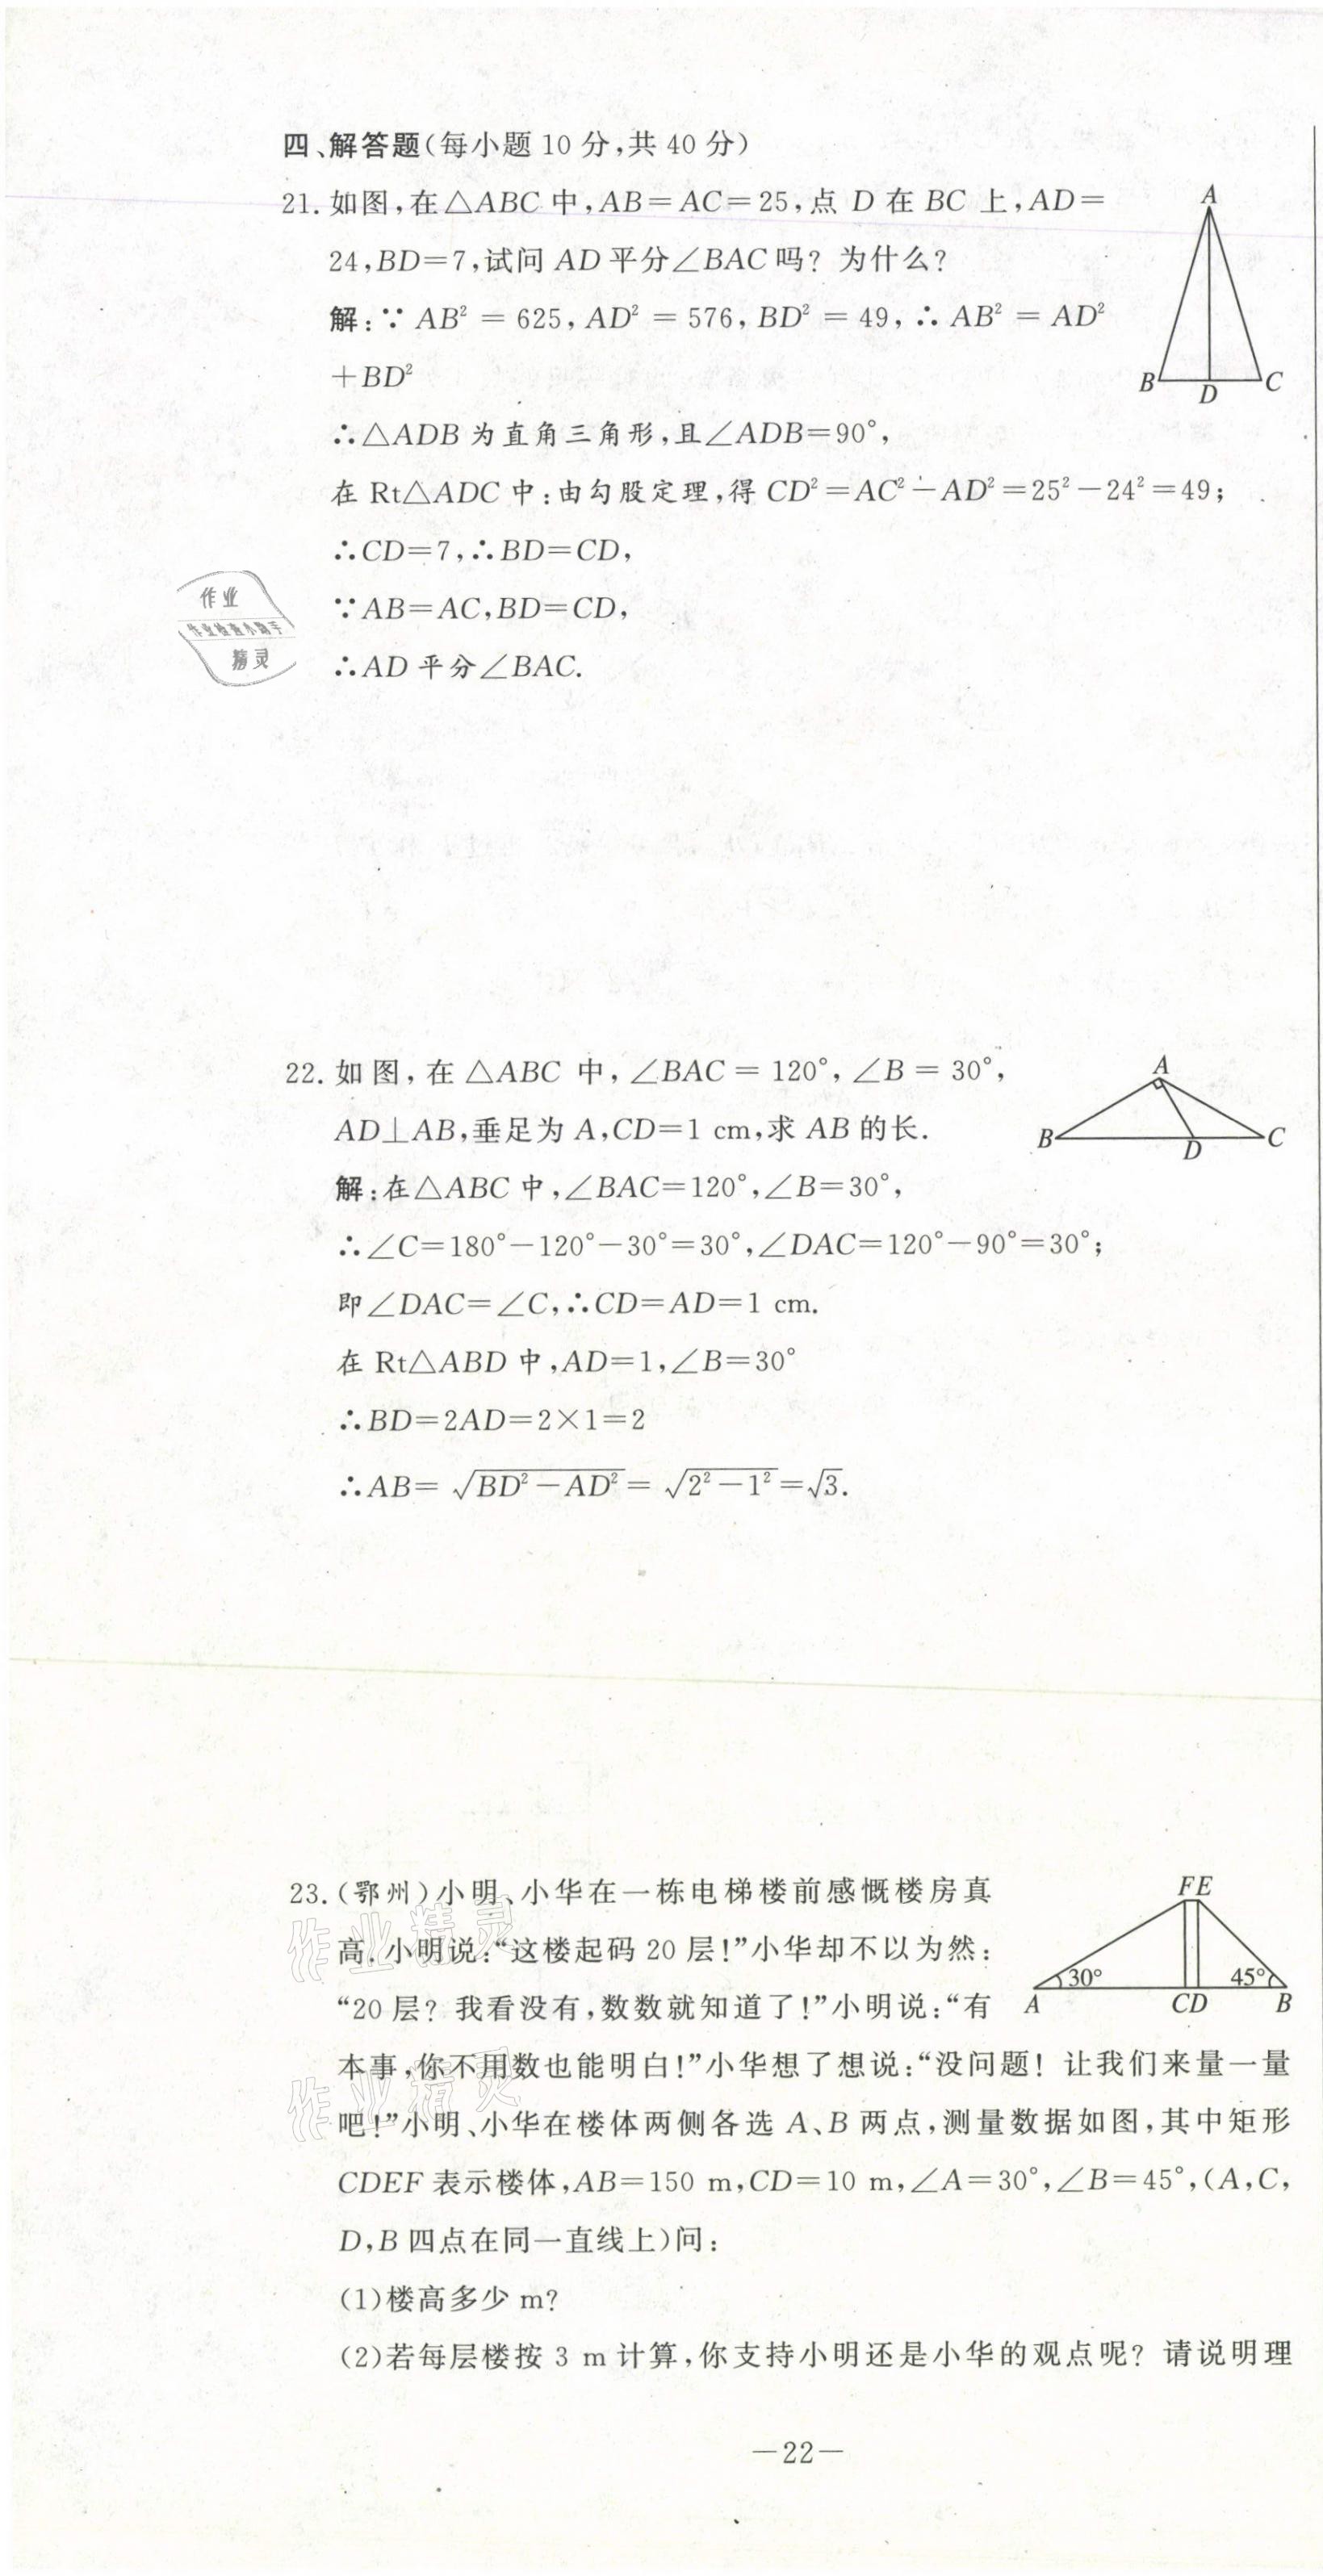 四、解答题(每小题10分,共40分)
21. 如图,在△ABC中,AB=AC=25,点 D 在 BC 上,AD=
24,BD=7,试问 AD 平分∠BAC 吗? 为什么?
解:∵ AB² = 625, AD² = 576, BD² = 49, ∴ AB² = AD²
+BD²
∴△ADB 为直角三角形,且∠ADB=90°,
在 Rt△ADC 中:由勾股定理,得 CD²=AC²-AD²=25²-24²=49;
∴CD=7,∴BD=CD,
∵AB=AC,BD=CD,
∴AD 平分∠BAC.
A
B
D
C
作业
作业检查小助手
精灵
22. 如图, 在 △ABC 中, ∠BAC = 120°, ∠B = 30°,
AD⊥AB,垂足为 A,CD=1 cm,求 AB 的长.
解:在△ABC 中,∠BAC=120°,∠B=30°,
∴∠C=180°-120°-30°=30°,∠DAC=120°-90°=30°;
即∠DAC=∠C,∴CD=AD=1 cm.
在 Rt△ABD 中,AD=1,∠B=30°
∴BD=2AD=2×1=2
∴AB= √(BD²-AD²) = √(2²-1²) =√3.
A
B
D
C
23. (鄂州)小明、小华在一栋电梯楼前感慨楼房真
高. 小明说:“这楼起码 20 层!”小华却不以为然:
“20 层? 我看没有,数数就知道了!”小明说:“有
本事,你不用数也能明白!”小华想了想说:“没问题! 让我们来量一量
吧!”小明、小华在楼体两侧各选 A、B 两点,测量数据如图,其中矩形
CDEF 表示楼体,AB=150 m,CD=10 m,∠A=30°,∠B=45°,(A,C,
D,B 四点在同一直线上)问:
(1)楼高多少 m?
(2)若每层楼按 3 m 计算,你支持小明还是小华的观点呢? 请说明理
FE
30°
45°
A
CD
B
作业精灵
作业精灵
—22—